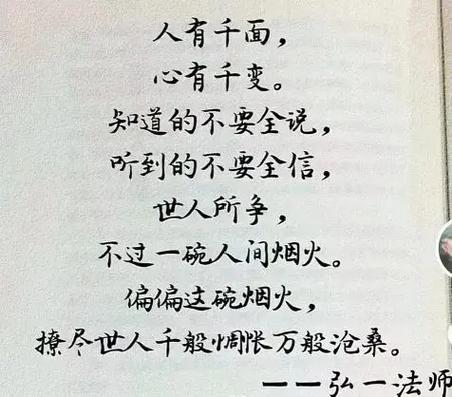 人有千面，
心有千变。
知道的不要全说，
听到的不要全信，
世人所争，
不过一碗人间烟火。
偏偏这碗烟火，
撩尽世人千般惆怅万般沧桑。
——弘一法师